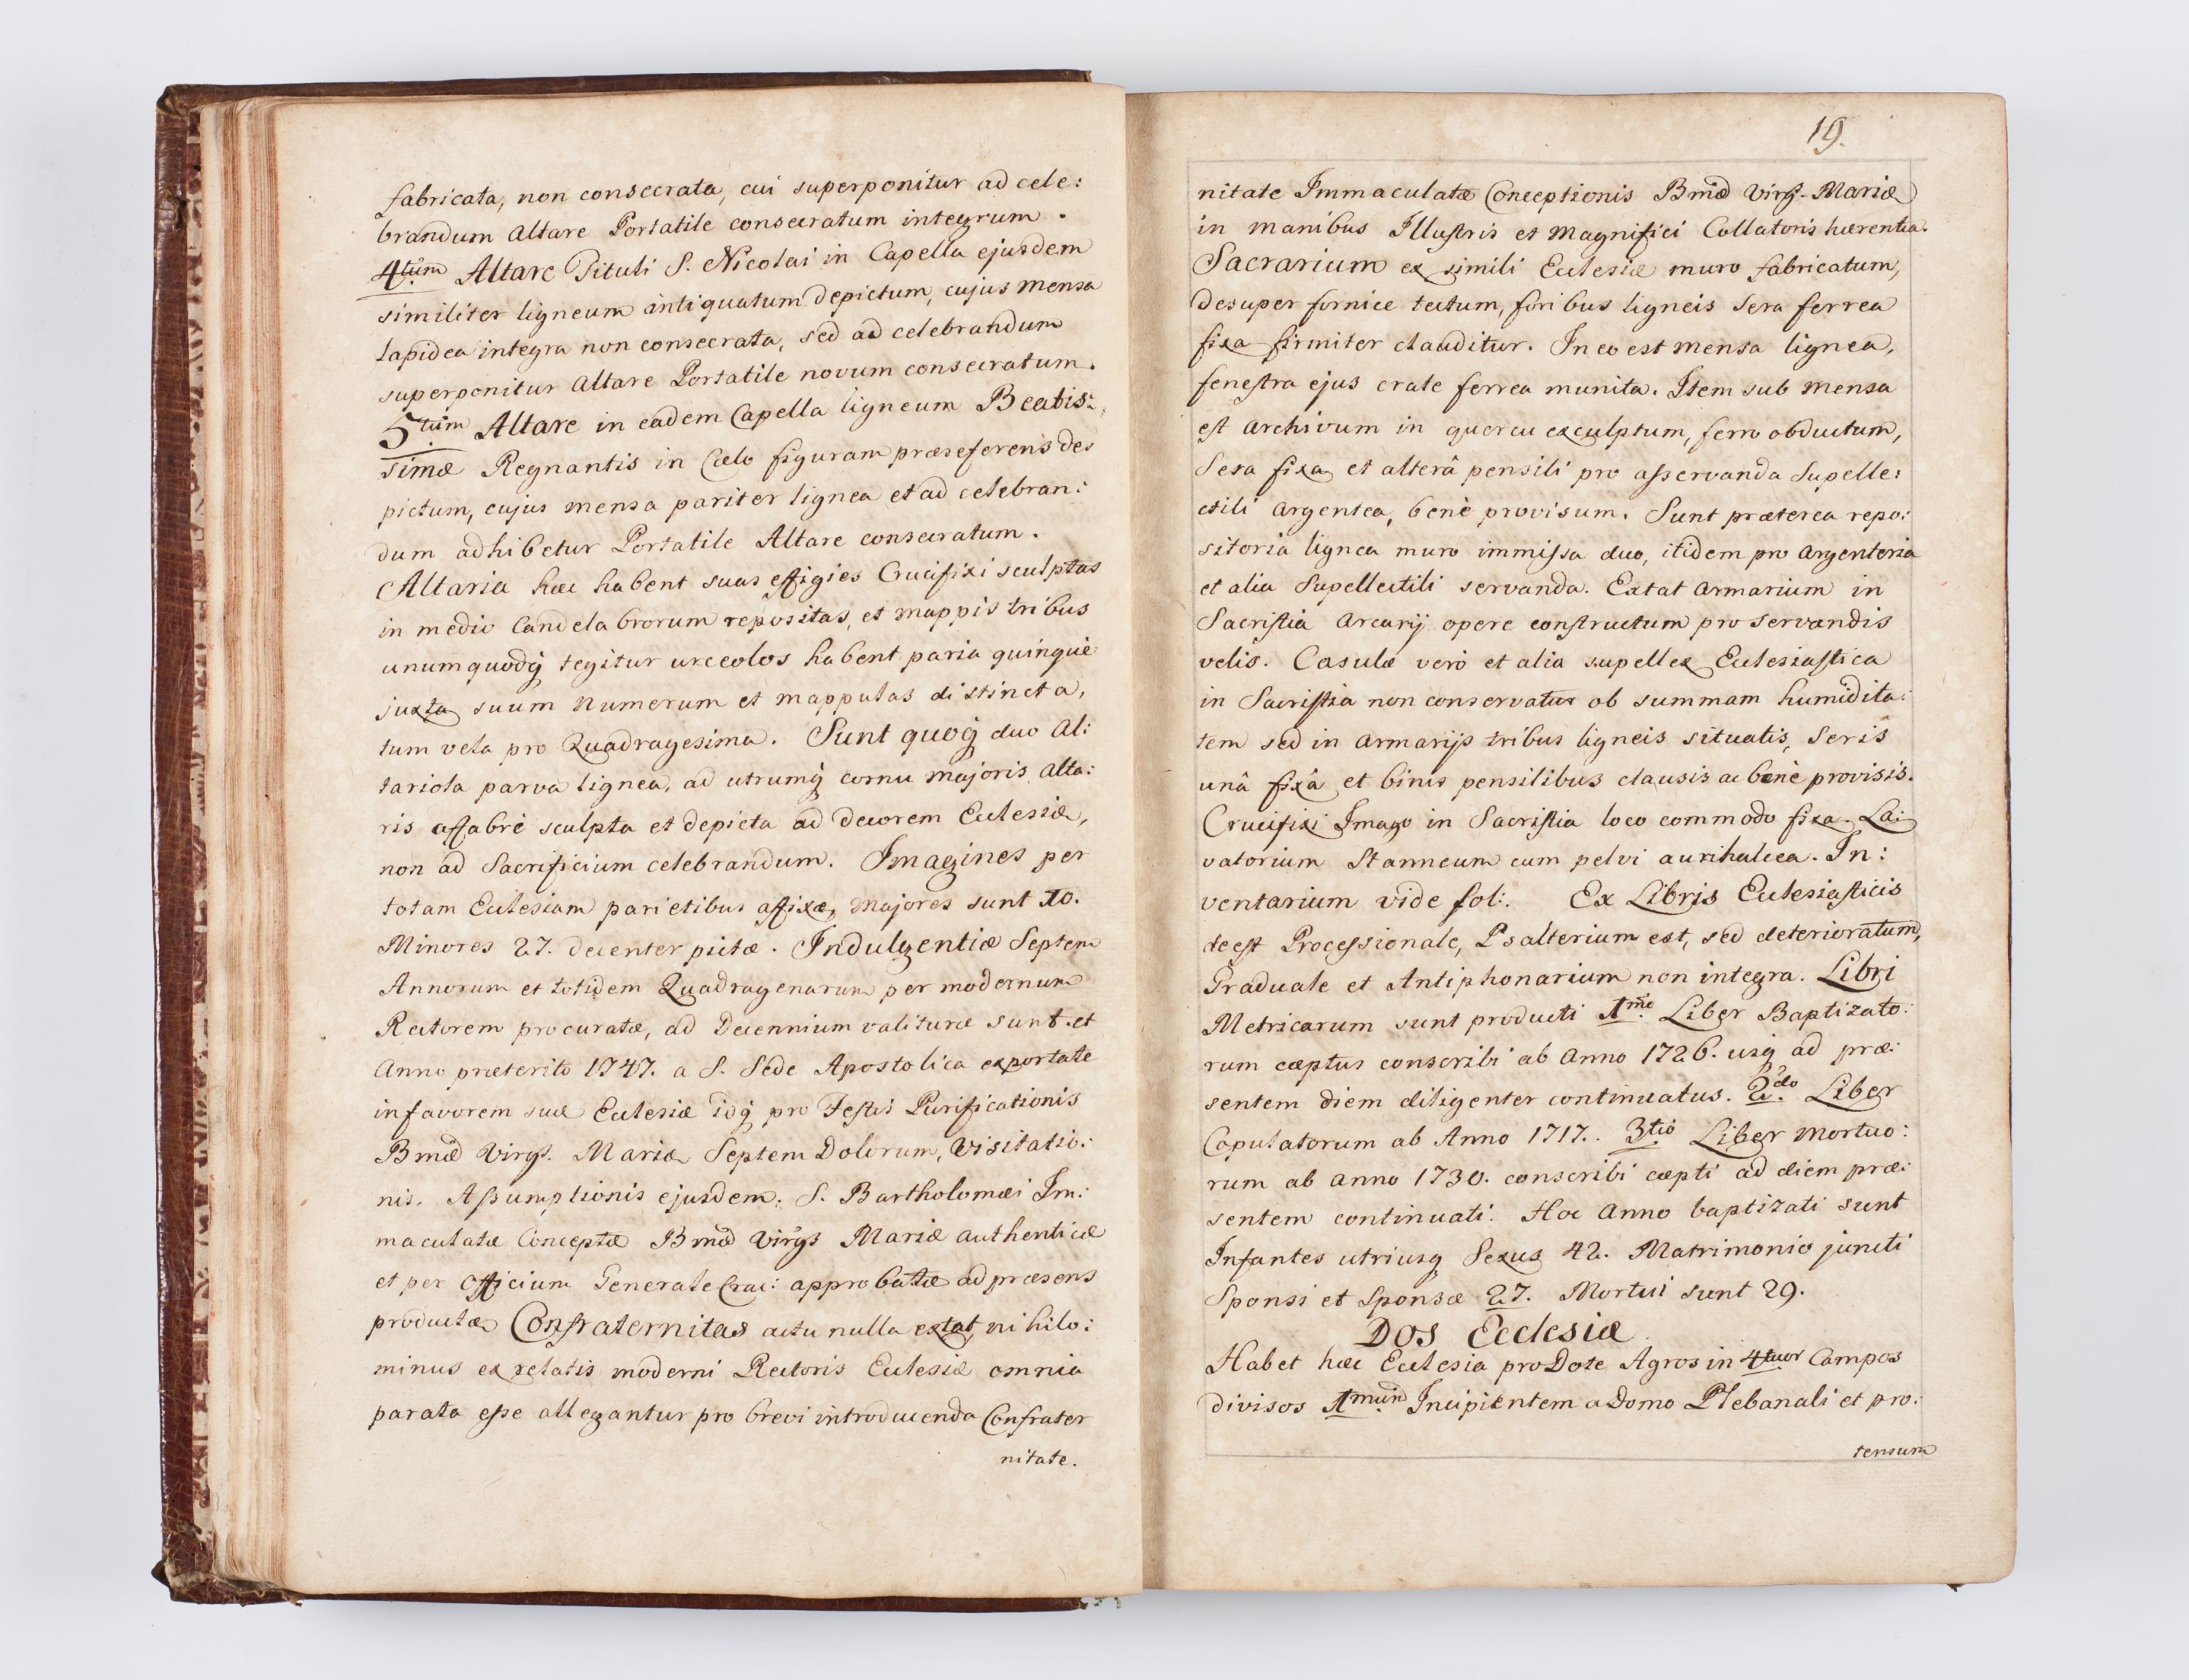 fabricata, non consecrata, cui superponitur ad cele:
brandum Altare Portatile consecratum integrum.
4tum Altare Tituli S. Nicolai in Capella ejusdem
similiter ligneum antiquatum depictum, cujus mensa
lapidea integra non consecrata, sed ad celebrandum
superponitur Altare Portatile novum consecratum.
5tum Altare in eadem Capella ligneum Beatis:
simæ Regnantis in Cœlo figuram præseferens de:
pictum, cujus mensa pariter lignea et ad celebran:
dum adhibetur Portatile Altare consecratum.
Altaria hæc habent suas effigies Crucifixi sculptas
in medio Candelabrorum repositas, et mappis tribus
unumquodq tegitur urceolos habent paria quinque
juxta suum numerum et mappulas distincta,
tum vela pro Quadragesima. Sunt quoq duo Al:
tariola parva lignea, ad utrumq cornu majoris Alta:
ris affabrè sculpta et depicta ad decorem Ecclesiæ,
non ad Sacrificium celebrandum. Imagines per
totam Ecclesiam parietibus affixæ, majores sunt 10.
Minores 27. decenter pictæ. Indulgentiæ Septem
Annorum et totidem Quadragenarum per modernum
Rectorem procuratæ, ad Decennium valituræ sunt et
Anno præterito 1747. a S. Sede Apostolica exportatæ
in favorem suæ Ecclesiæ idq pro Festis Purificationis
Bmæ Virgs. Mariæ Septem Dolorum, Visitatio:
nis. Assumptionis ejusdem. S. Bartholomæi Im:
maculatæ Conceptæ Bmæ Virgs Mariæ authenticæ
et per Officium Generale Crac: approbatæ ad præsens
productæ. Confraternitas actu nulla extat, nihilo:
minus ex relatis moderni Rectoris Ecclesiæ omnia
parata esse allegantur pro brevi introducenda Confrater
nitate.
19.
nitate Immaculatæ Conceptionis Bmæ Virg. Mariæ
in manibus Illustris et Magnifici Collatoris hærentia.
Sacrarium ex simili Ecclesiæ muro fabricatum,
desuper fornice tectum, foribus ligneis sera ferrea
fixa firmiter clauditur. In eo est mensa lignea,
fenestra ejus crate ferrea munita. Item sub mensa
est Archivum in quercu exculptum, ferro obductum,
Sera fixa et alterâ pensili pro asservanda Supelle:
ctili Argentea, benè provisum. Sunt præterea repo:
sitoria lignea muro immissa duo, itidem pro Argenteria
et alia Supellectili servanda. Extat Armarium in
Sacristia Arcarij opere constructum pro servandis
velis. Casulæ verò et alia supellex Ecclesiastica
in Sacristia non conservatur ob summam humidita:
tem sed in Armarijs tribus ligneis situatis, Seris
unâ fixâ et binis pensilibus clausis ac benè provisis.
Crucifixi Imago in Sacristia loco commodo fixa. La:
vatorium Stanneum cum pelvi aurihalcea. In:
ventarium vide fol:. Ex Libris Ecclesiasticis
deest Processionale, Psalterium est, sed deterioratum,
Graduale et Antiphonarium non integra. Libri
Metricarum sunt producti 1mo Liber Baptizato:
rum cæptus conscribi ab Anno 1726. usq ad præ:
sentem diem diligenter continuatus. 2do Liber
Copulatorum ab Anno 1717.. 3tio Liber Mortuo:
rum ab Anno 1730. conscribi cæpti ad diem præ:
sentem continuati. Hoc Anno baptizati sunt
Infantes utriusq Sexus 42. Matrimonio juncti
Sponsi et Sponsæ 27. Mortui sunt 29.
Dos Ecclesiæ
Habet hæc Ecclesia pro Dote Agros in 4tuor Campos
divisos 1mum Incipientem a Domo Plebanali et pro:
tensum